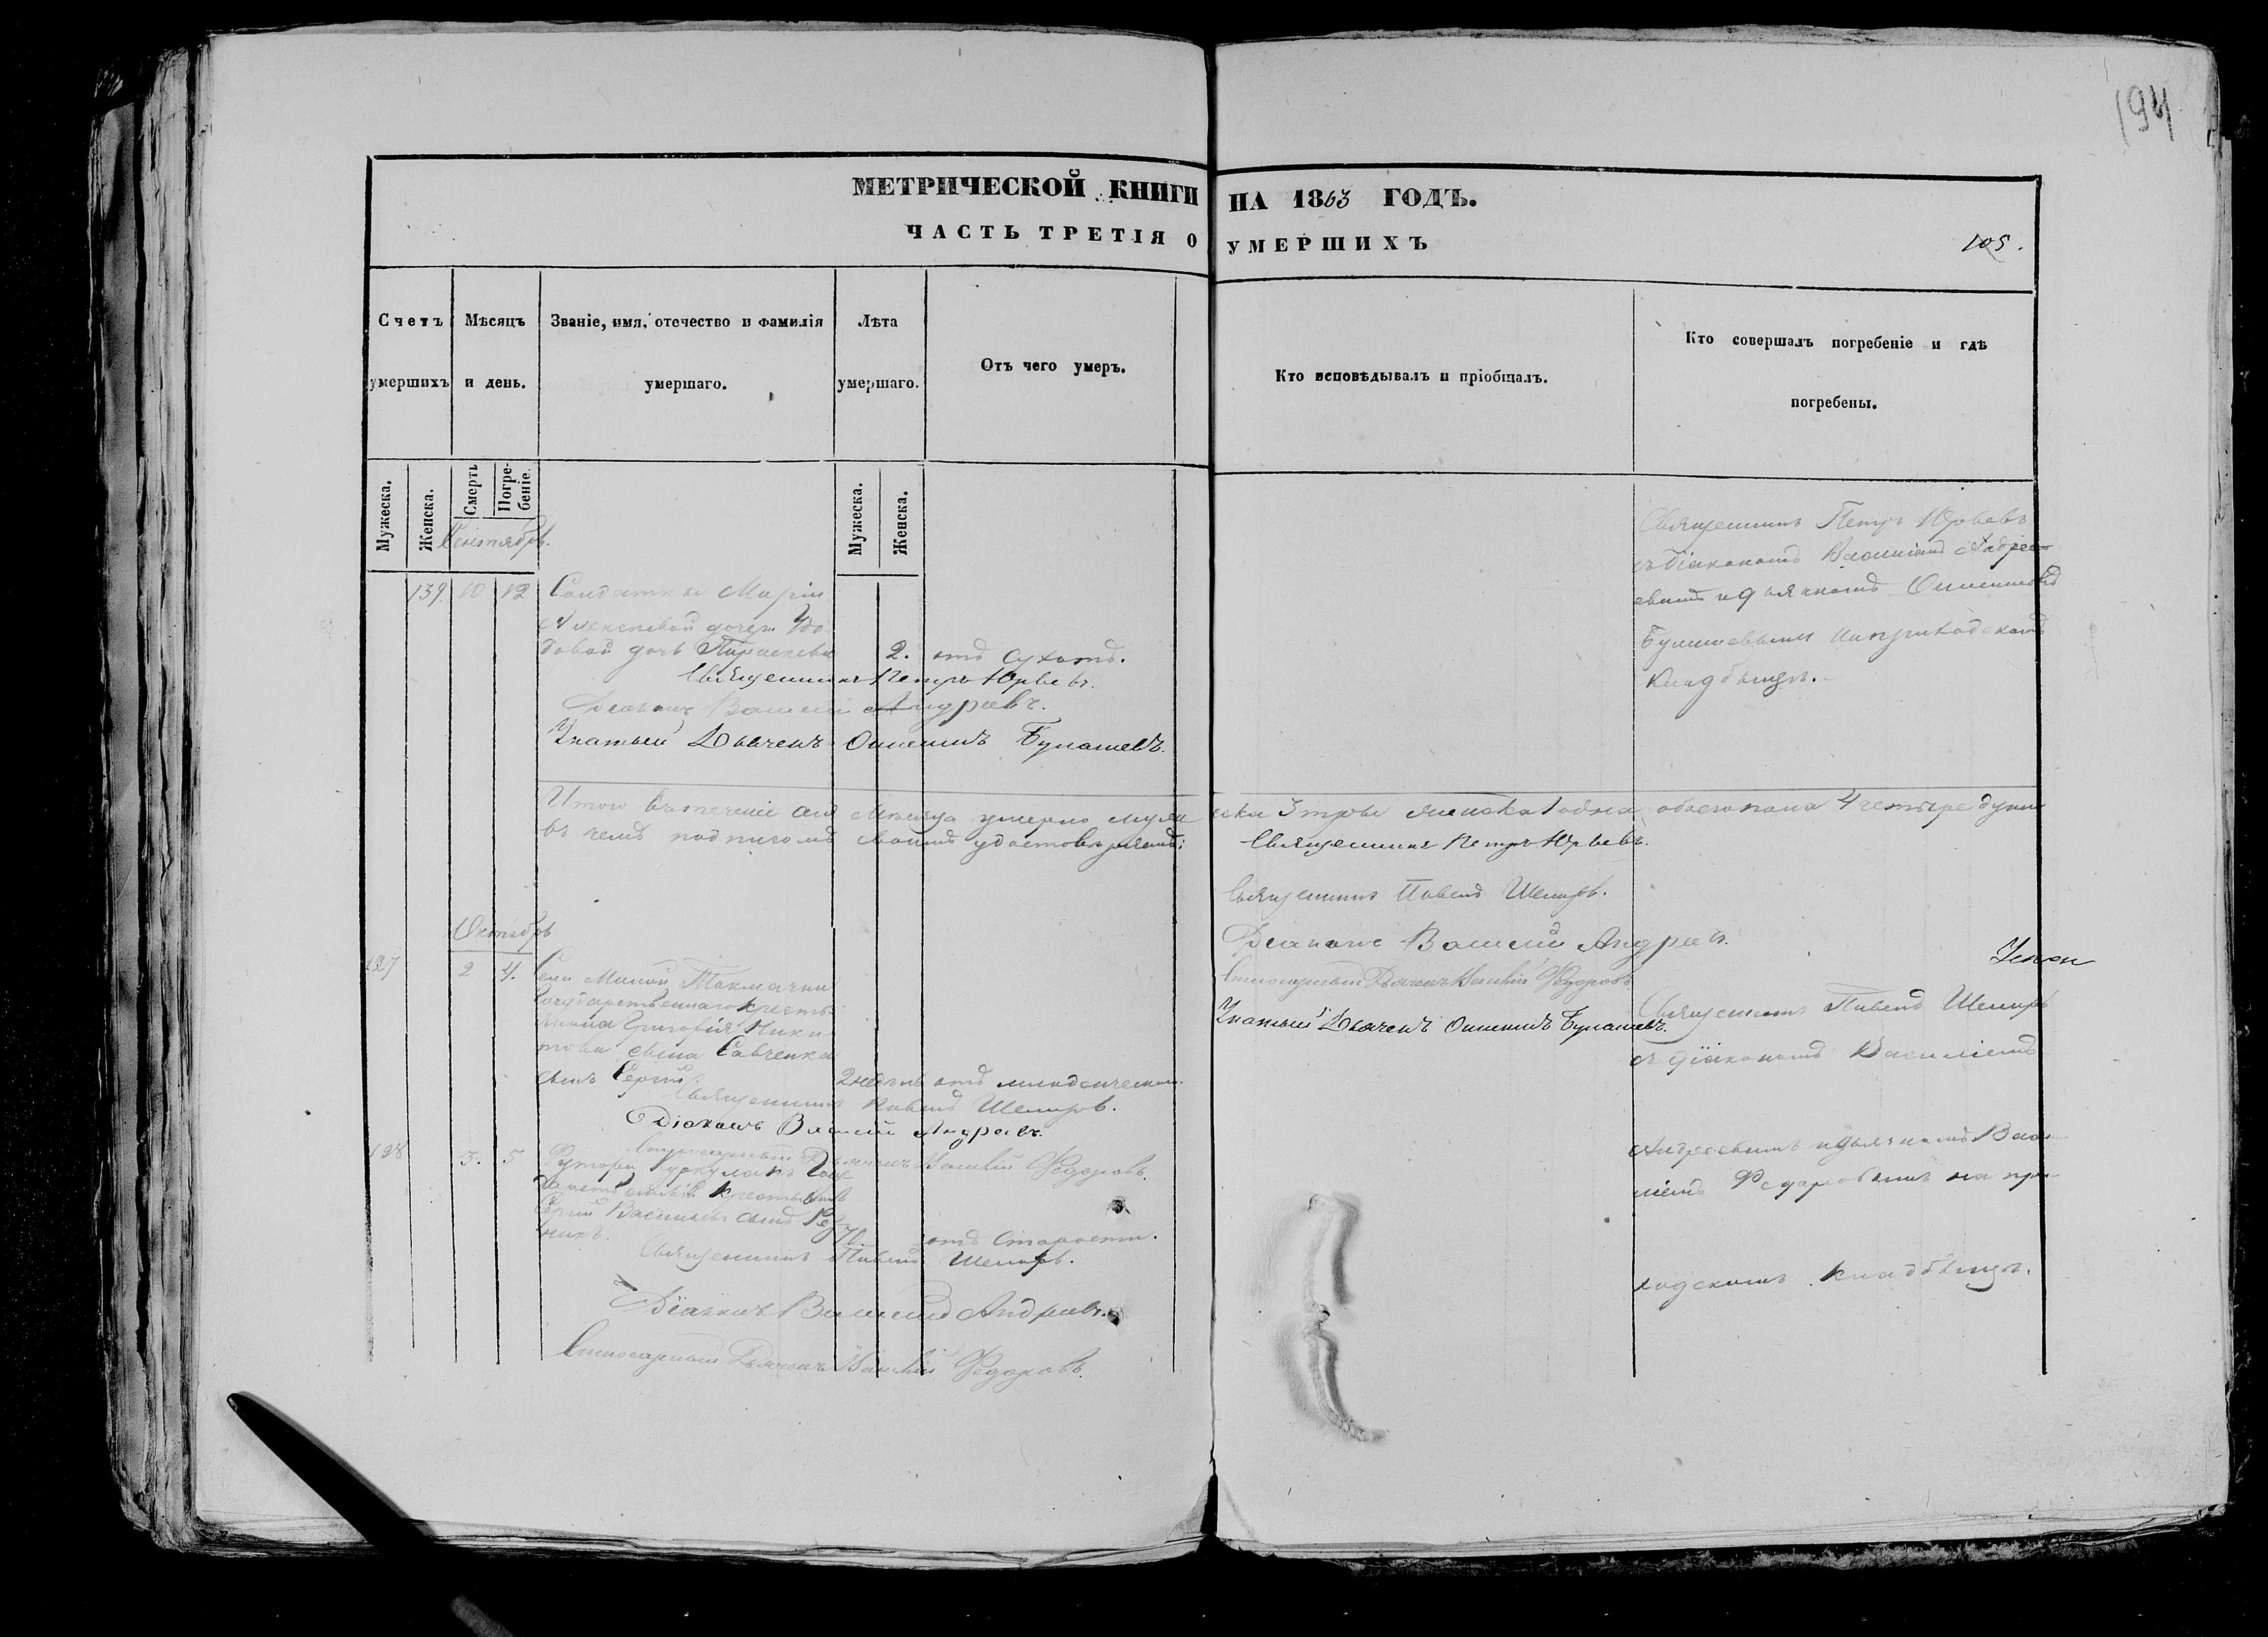 194
МЕТРИЧЕСКОЙ КНИГИ НА 1863 ГОДЪ.
ЧАСТЬ ТРЕТІЯ О УМЕРШИХЪ
105.
Счетъ умершихъ
Мѣсяцъ и день.
Званіе, имя, отечество и фамилія умершаго.
Лѣта умершаго.
Отъ чего умеръ.
Кто исповѣдывалъ и пріобщалъ.
Кто совершалъ погребеніе и гдѣ погребены.
Мужеска.
Женска.
Смерть
Погребеніе.
Мужеска.
Женска.
Сентябрь.
139 10 12 Солдатки Маріи
дочер. Удо
довой дочь Параскева 2. отъ Сухотъ.
Священникъ Петръ Юрьевъ.
Діаконъ Василій Андреевъ.
Дьячекъ Булашевъ.
Священникъ Петръ Юрьевъ
съ діакономъ Василіемъ Андре
евымъ и дьячкомъ
Булашевымъ на приходскомъ
кладбищѣ.
Итого въ теченіи сего мѣсяца умерло мужеска 3 три женска 1 одна, обоего пола 4 четыре души
въ чемъ подписомъ своимъ удостовѣряемъ:
Священникъ Петръ Юрьевъ.
Священникъ Павелъ
Діаконъ Василій Андреевъ.
Дьячекъ Василій Федоровъ
Дьячекъ Булашевъ.
Октябрь
127 2 4. Села Малой Токмачки
Государственнаго кресть
янина Григорія Ники
това сына Савченка
сынъ Сергій. 2 недѣли отъ младенческой.
Священникъ Павелъ
Діаконъ Василій Андреевъ.
Дьячекъ Василій Федоровъ.
128 3. 5 Хутора Госу
дарственный крестьянинъ
Сергій Васильевъ сынъ Рез
никъ. 70. отъ Старости.
Священникъ Павелъ
Діаконъ Василій Андреевъ.
Дьячекъ Василій Федоровъ.
Священникъ Павелъ
съ діакономъ Василіемъ
Андреевымъ и дьячкомъ Васи
ліемъ Федоровымъ на при
ходскомъ кладбищѣ.